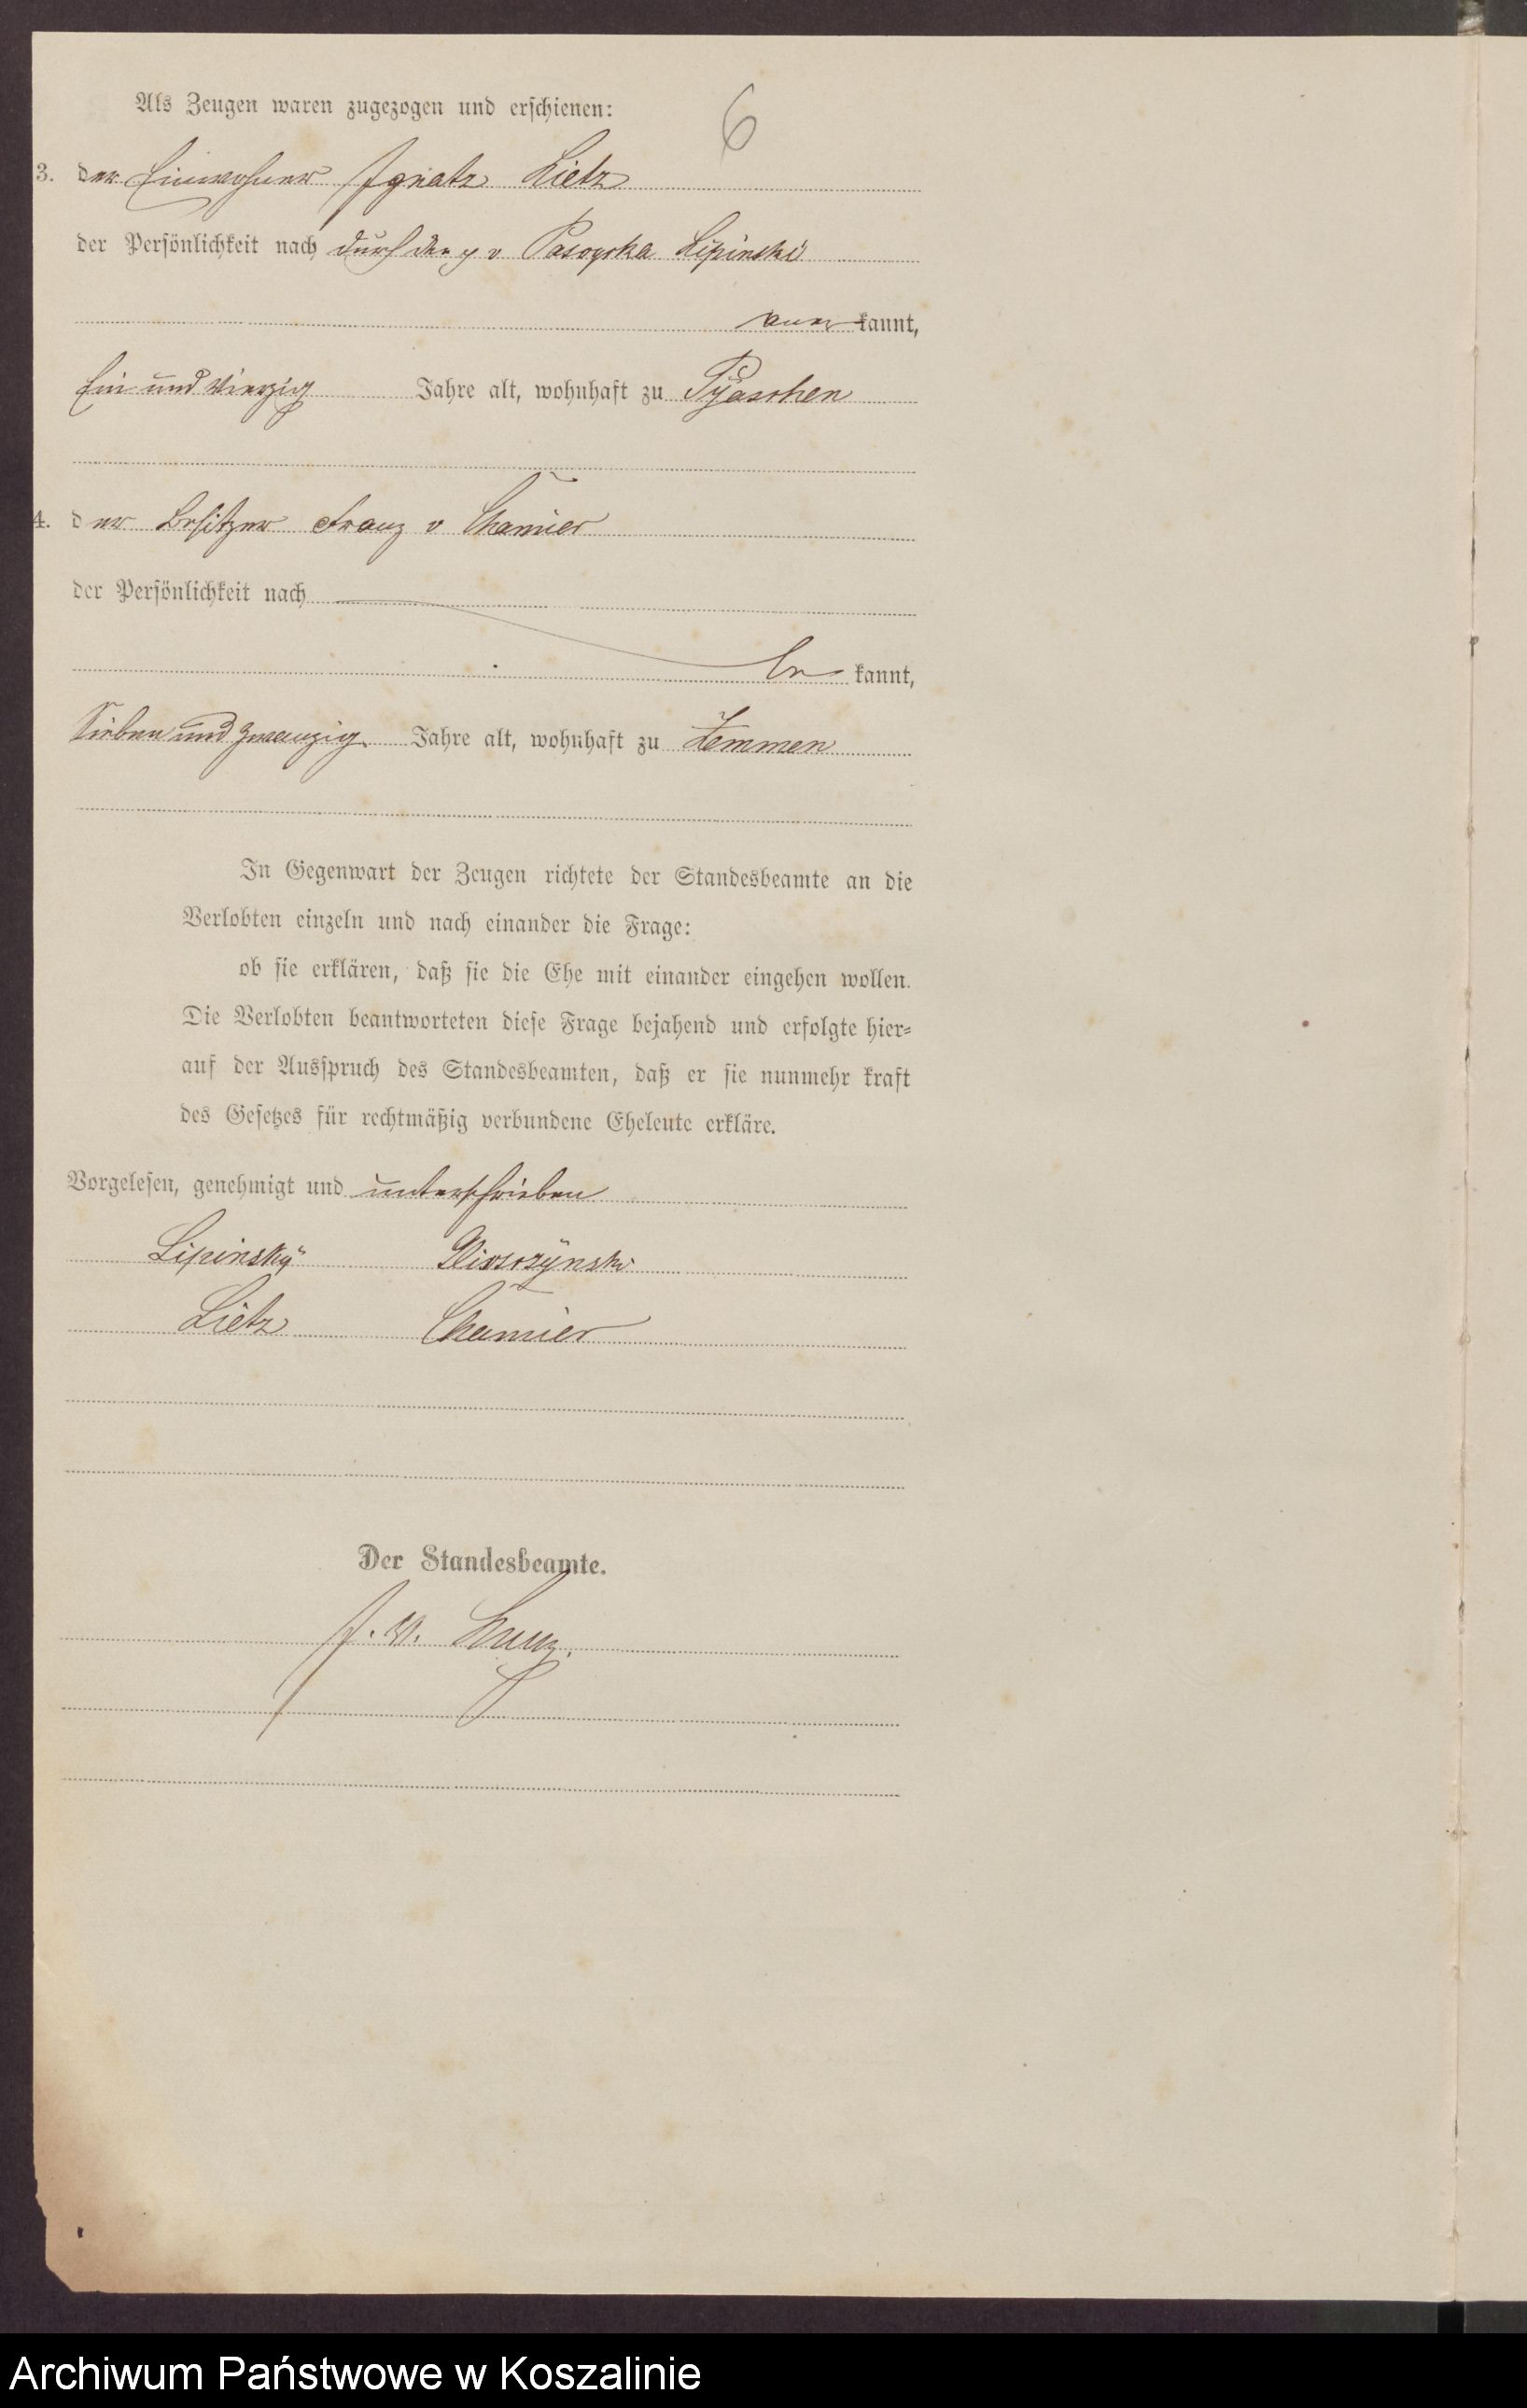 Als Zeugen waren zugezogen und erschienen:
6
3. der Einwohner Ignatz Lietz
der Persönlichkeit nach durch den p v Lipinski
kannt,
Ein und Vierzig Jahre alt, wohnhaft zu Pyaschen
4. der Besitzer Franz v Chamier
der Persönlichkeit nach
be kannt,
Sieben und zwanzig Jahre alt, wohnhaft zu Zemmen
In Gegenwart der Zeugen richtete der Standesbeamte an die
Verlobten einzeln und nach einander die Frage:
ob sie erklären, daß sie die Ehe mit einander eingehen wollen.
Die Verlobten beantworteten diese Frage bejahend und erfolgte hier-
auf der Ausspruch des Standesbeamten, daß er sie nunmehr kraft
des Gesetzes für rechtmäßig verbundene Eheleute erkläre.
Vorgelesen, genehmigt und unterschrieben
Lipinsky
Lietz Chamier
Der Standesbeamte.
J. V.
Archiwum Państwowe w Koszalinie